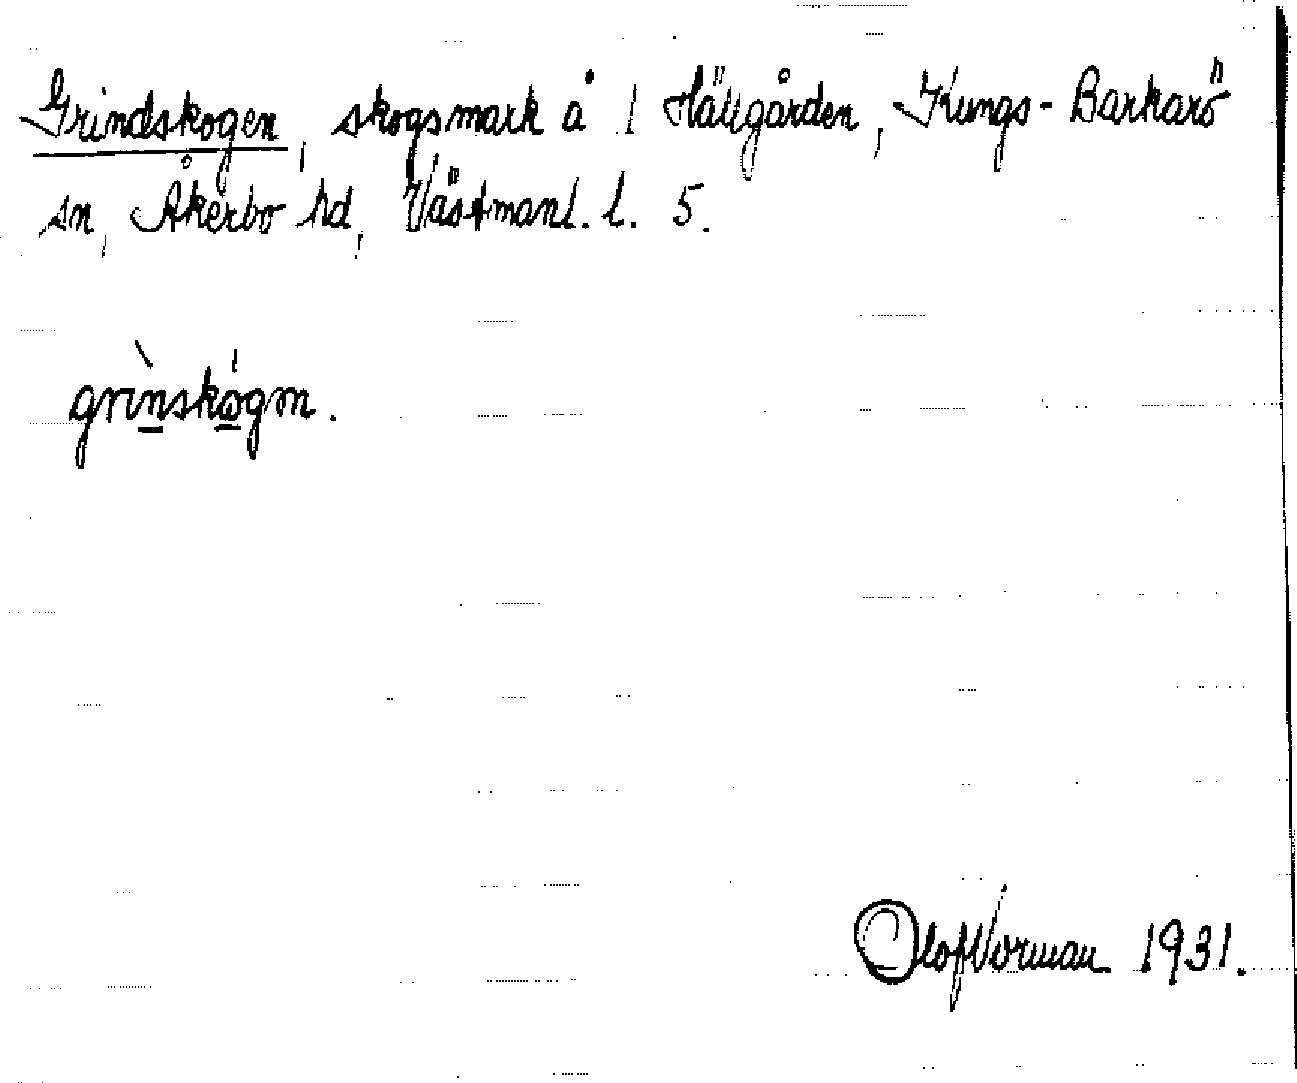 Grindskogen, skogsmark å 1 Hällgården, Kungs-Barkarö
sn, Åkerbo hd, Västmanl. l. 5.
grìnskógm.
Olof Vorman 1931.